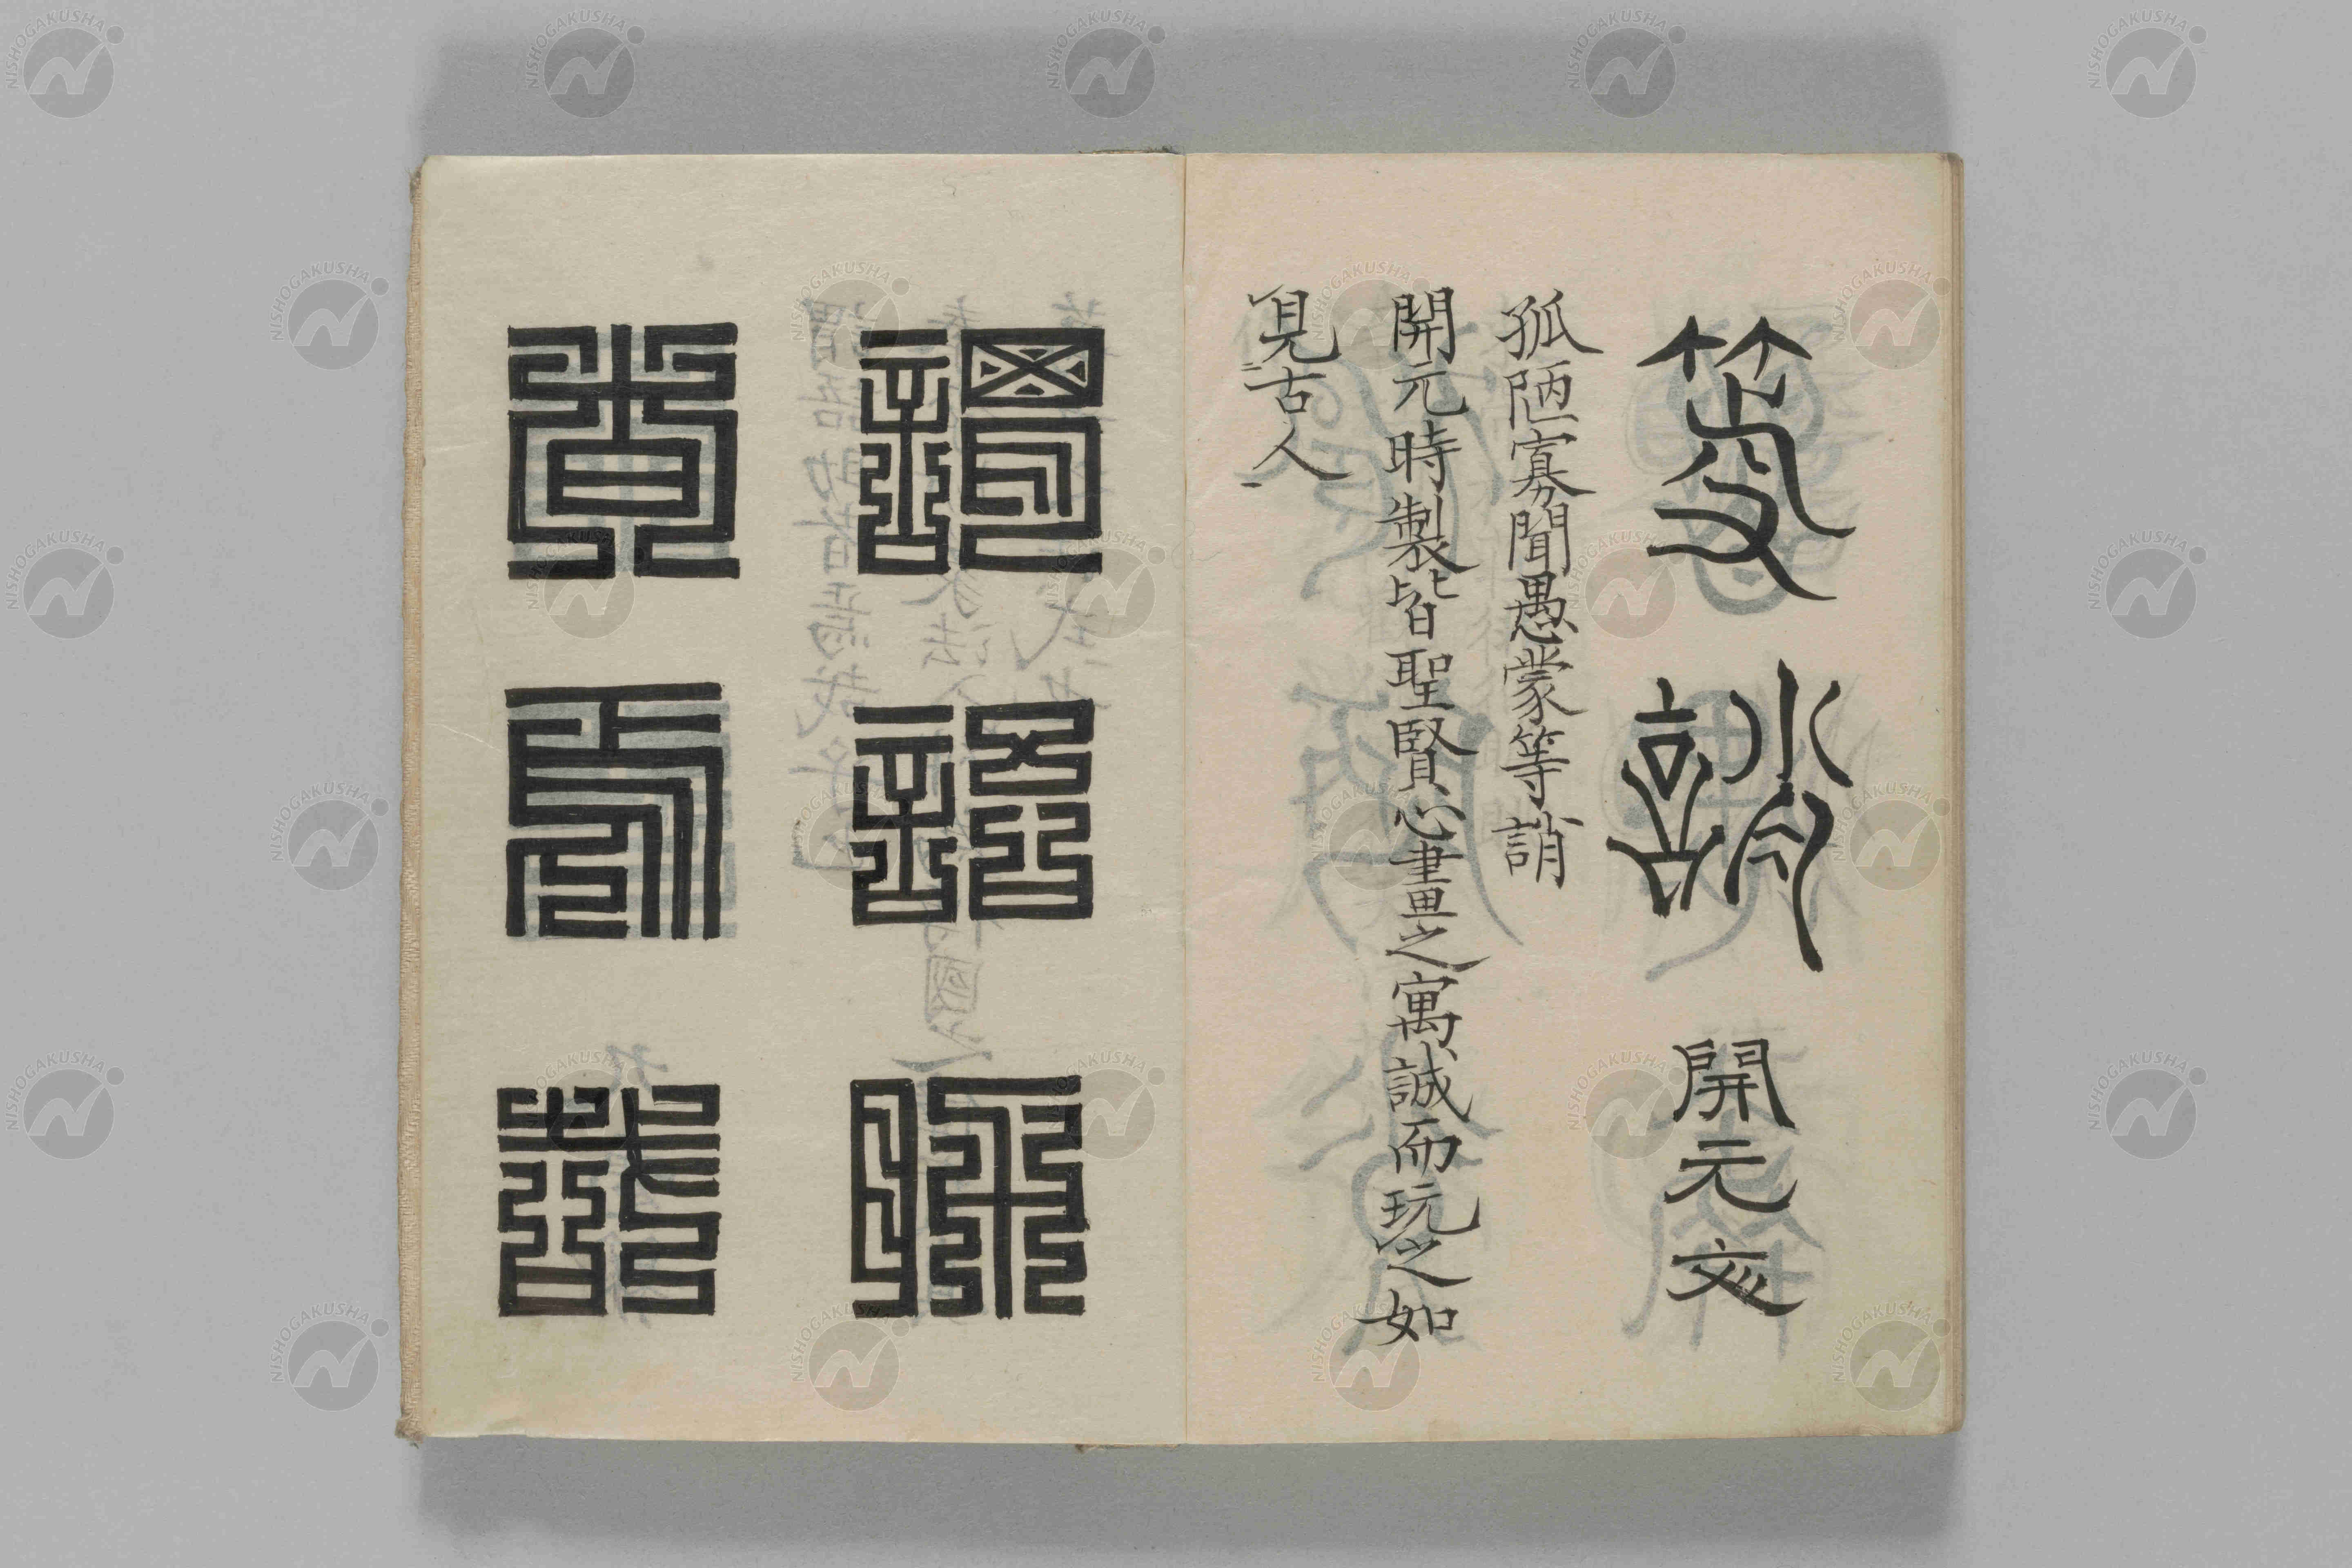 等誚 開元文
孤陋寡聞愚蒙等誚
開元時製皆聖賢心畫之寓誠而玩之如
見古人
謂語助
者焉哉
NISHOGAKUSHA